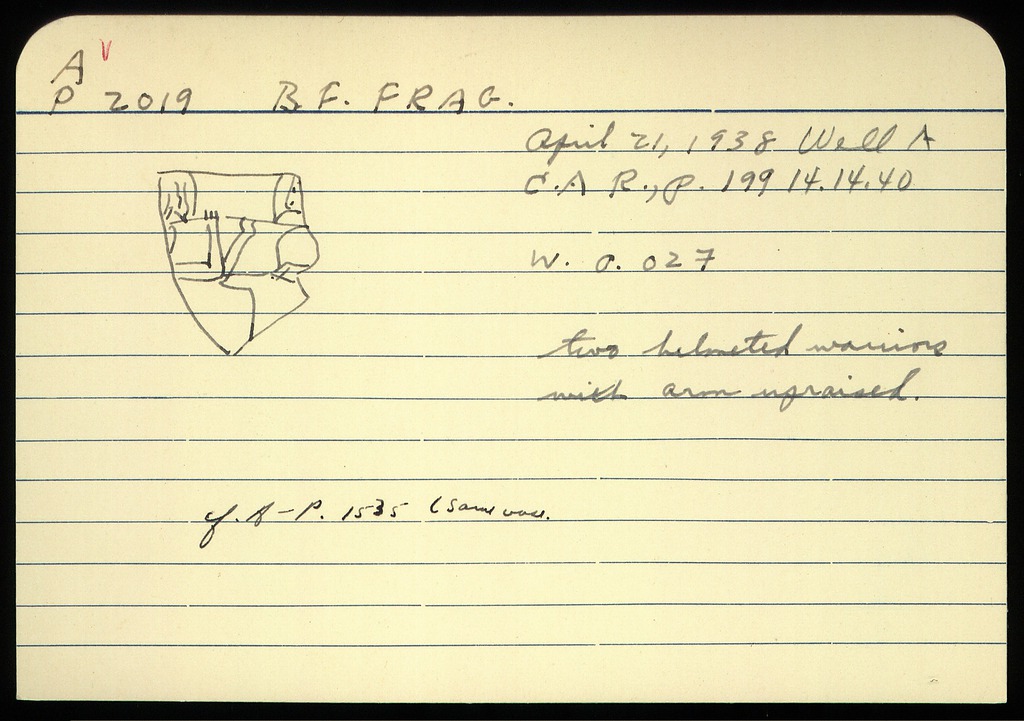 A V
P 2019 B.F. FRAG.
April 21, 1938 Well A
C.A R., p. 199 14.14.40
W. P. 027
two helmeted warriors
with arm upraised.
cf. A-P. 1535 (same vase.